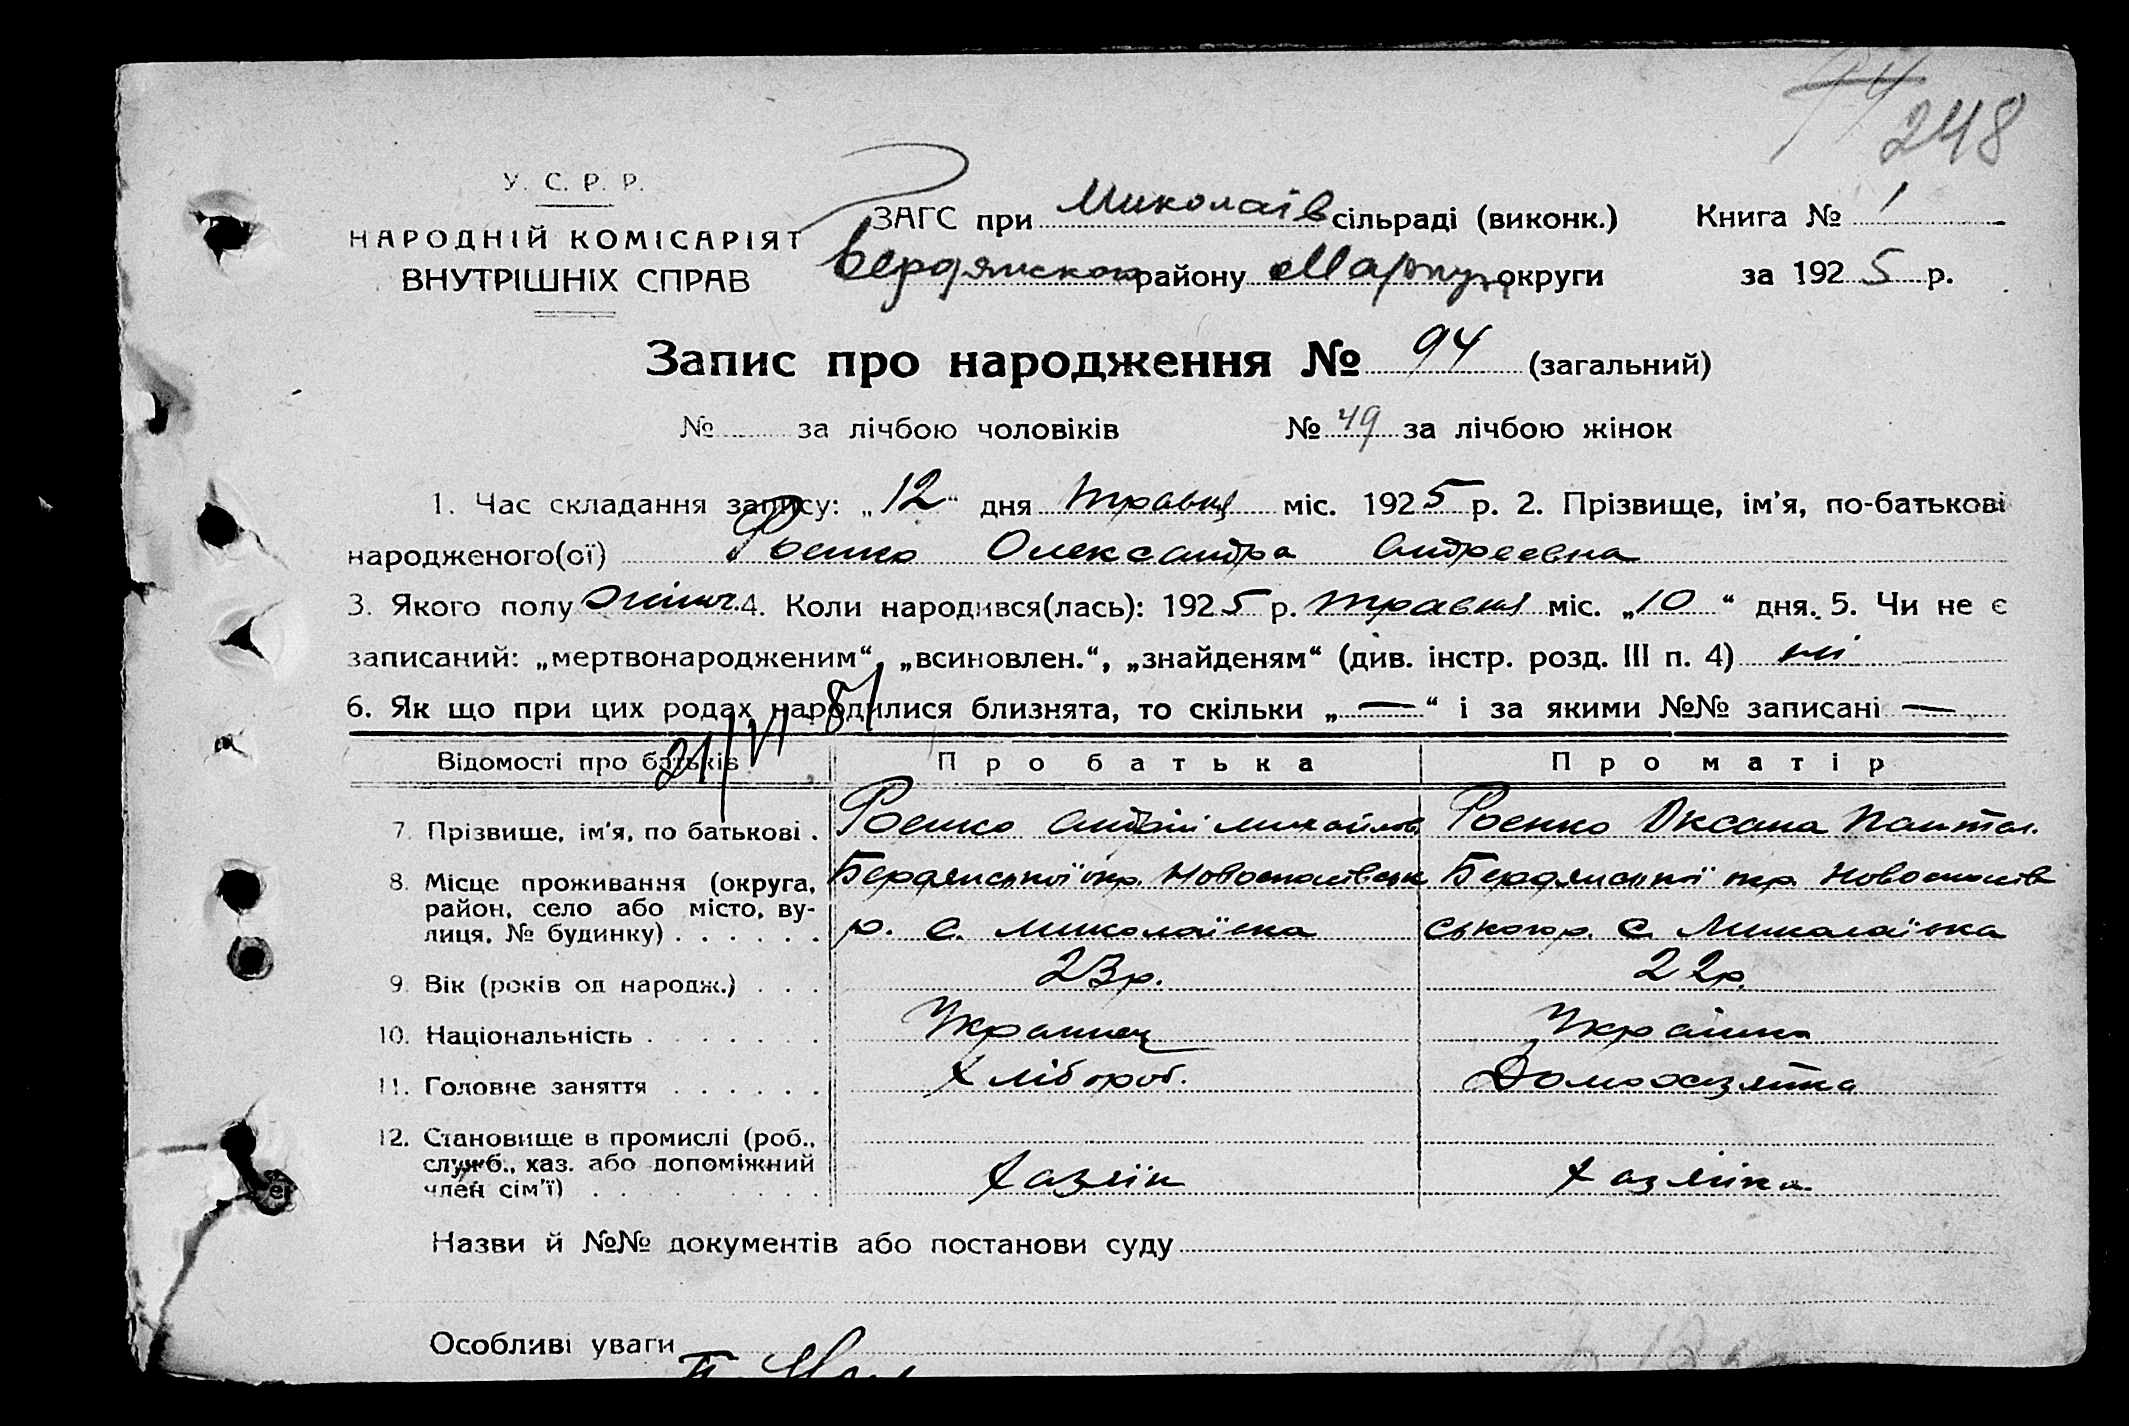 248
У. С. Р. Р.
НАРОДНІЙ КОМІСАРІЯТ
ВНУТРІШНІХ СПРАВ
ЗАГС при Миколаїв сільраді (виконк.) Книга № 1
Бердянского району Маріуп округи за 1925 р.
Запис про народження № 94 (загальний)
№ за лічбою чоловіків № 49 за лічбою жінок
1. Час складання запису: „12" дня травня міс. 1925 р. 2. Прізвище, ім'я, по-батькові
народженого(ої) Роенко Олександра Андреевна
3. Якого полу жіноч. 4. Коли народився(лась): 1925 р. травня міс. „10" дня. 5. Чи не є
записаний: „мертвонародженим", „всиновлен.", „знайденям" (див. інстр. розд. III п. 4) ні
6. Як що при цих родах народилися близнята, то скільки „—" і за якими №№ записані —
21/VI-81
Відомості про батьків Про батька Про матір
7. Прізвище, ім'я, по батькові . Роенко Андрій Михайлов Роенко Оксана Пантел.
8. Місце проживання (округа, Бердянської окр. Новоспасівськ Бердянської окр. Новоспасів
район, село або місто, ву-
лиця, № будинку) . . . . . . р. с. Миколаївка ського р. с. Миколаївка
9. Вік (років од народж.) . . . 23 р. 22 р.
10. Національність . . . . . . . Украинец Українка
11. Головне заняття . . . . . . Хлібороб. Домохазяйка
12. Становище в промислі (роб.,
служб., хаз. або допоміжний
член сім'ї) . . . . . . . . . Хазяїн Хазяйка
Назви й №№ документів або постанови суду
Особливі уваги